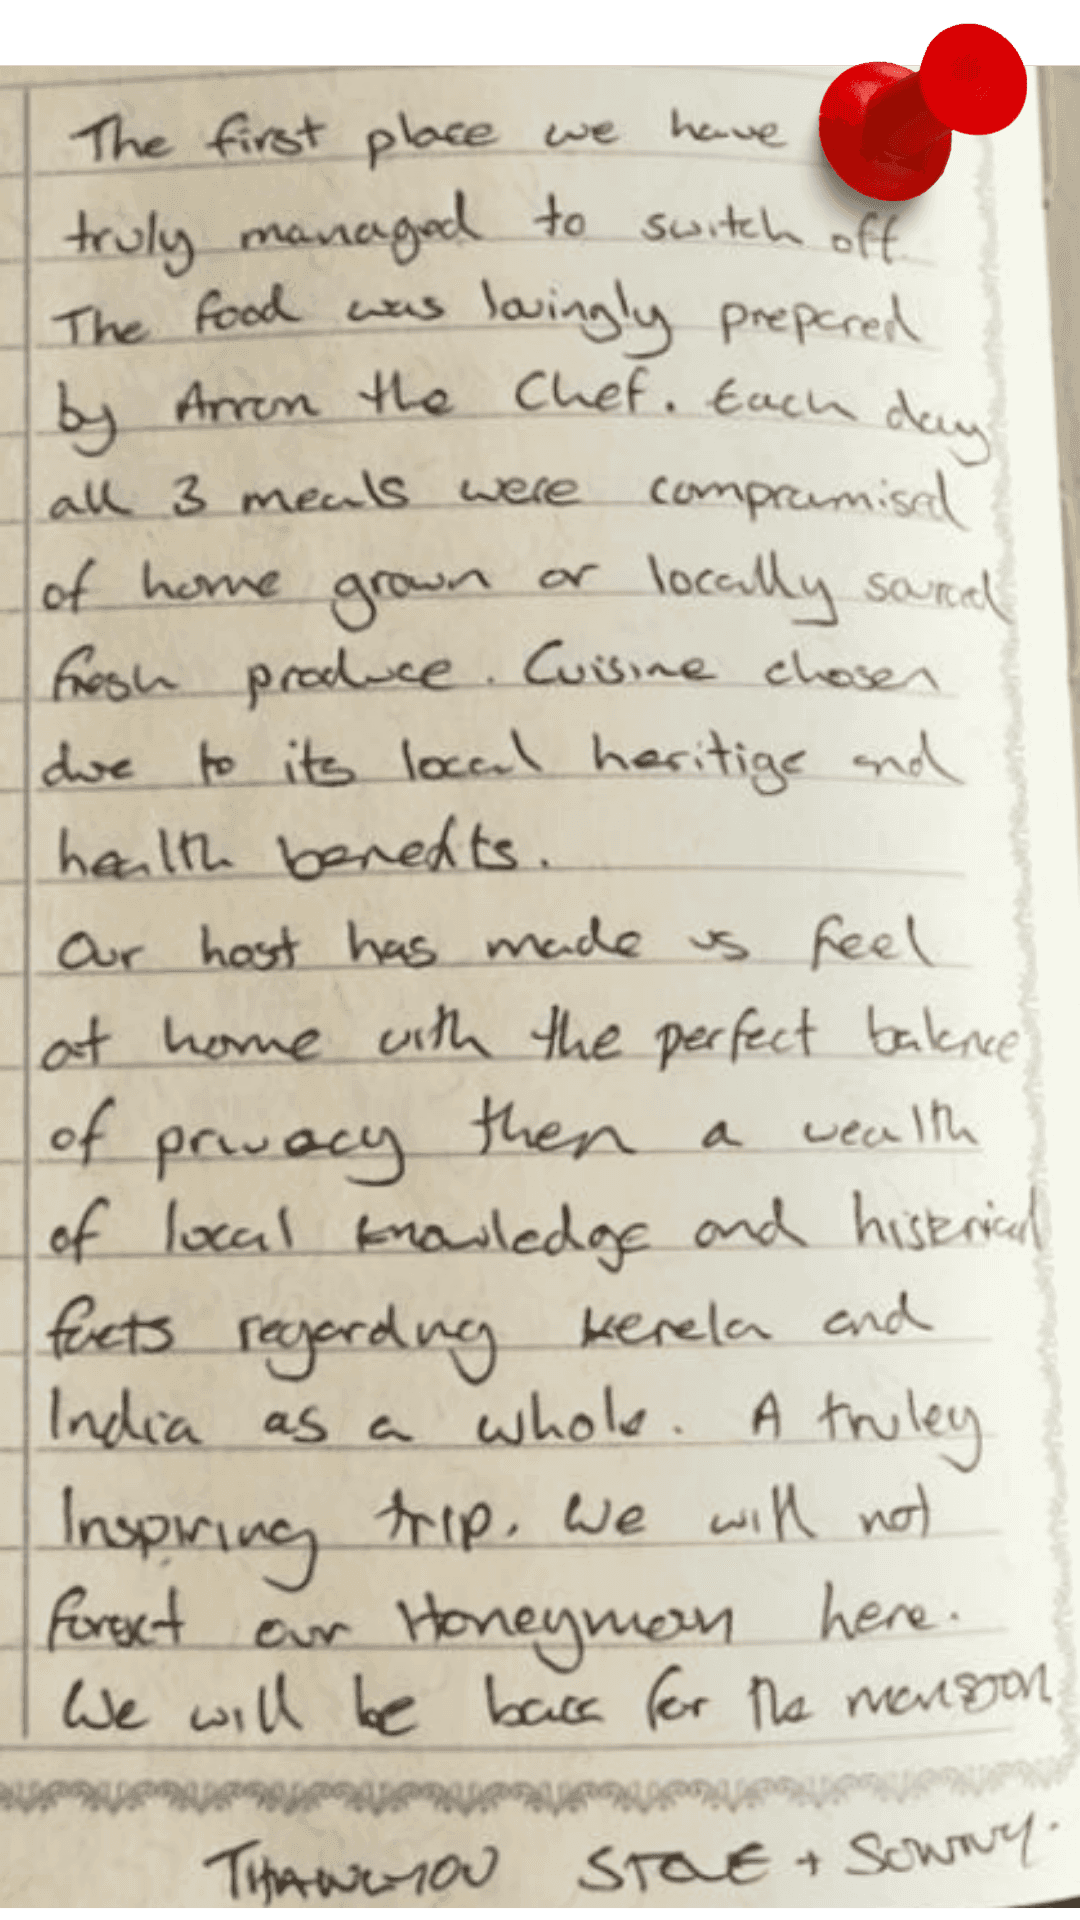 The first place we have
truly managed to switch off
The food was lovingly prepared
by Arron the Chef. Each day
all 3 meals were compramised
of home grown or locally sourced
fresh produce. Cuisine chosen
due to its local heritige and
health benefits.
Our host has made us feel
at home with the perfect balance
of privacy then a wealth
of local knowledge and historical
facts regarding kerela and
India as a whole. A truley
Inspiring trip. We will not
our Honeymoon here.
We will be back for the monsoon
THANKYOU STEVE +